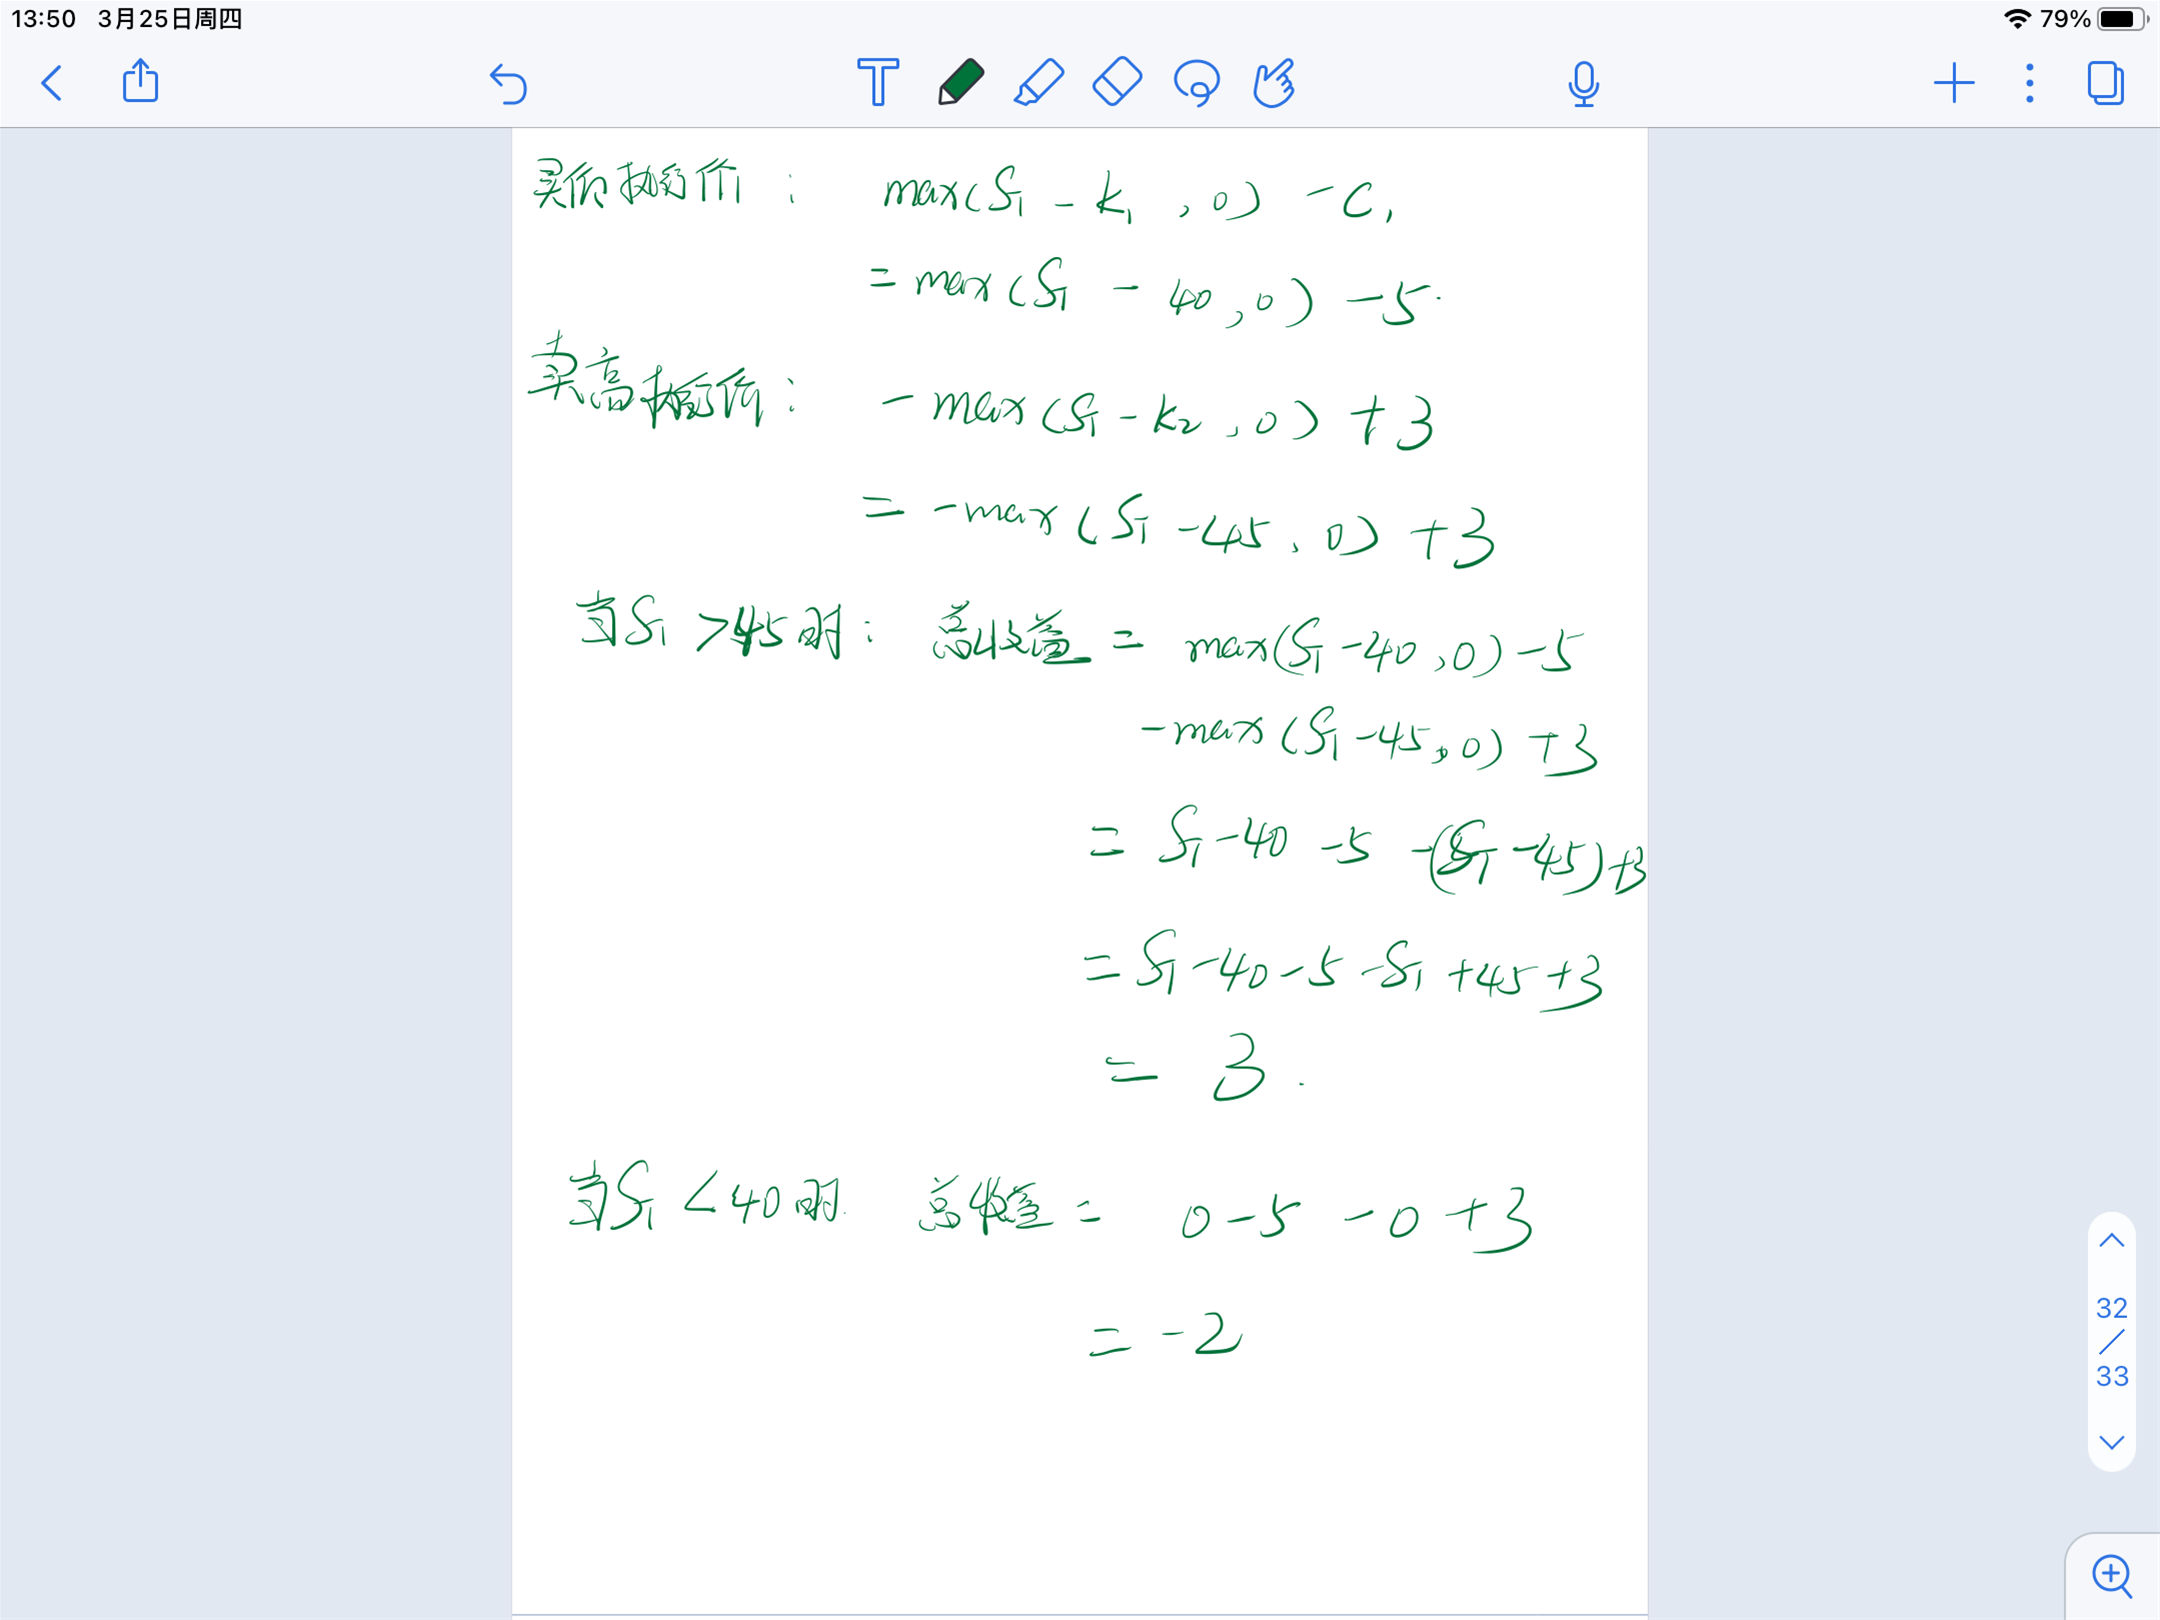 13:50 3月25日周四
79%
买低执行价 : max(S_T - K₁ , 0) - C₁
= max(S_T - 40, 0) - 5.
卖高执行价 : - max(S_T - K₂ , 0) + 3
= - max(S_T - 45, 0) + 3
当S_T > 45 时 : 总收益 = max(S_T - 40, 0) - 5
- max(S_T - 45, 0) + 3
= S_T - 40 - 5 - (S_T - 45) + 3
= S_T - 40 - 5 - S_T + 45 + 3
= 3 .
当S_T < 40 时. 总收益 = 0 - 5 - 0 + 3
= -2
32
/
33